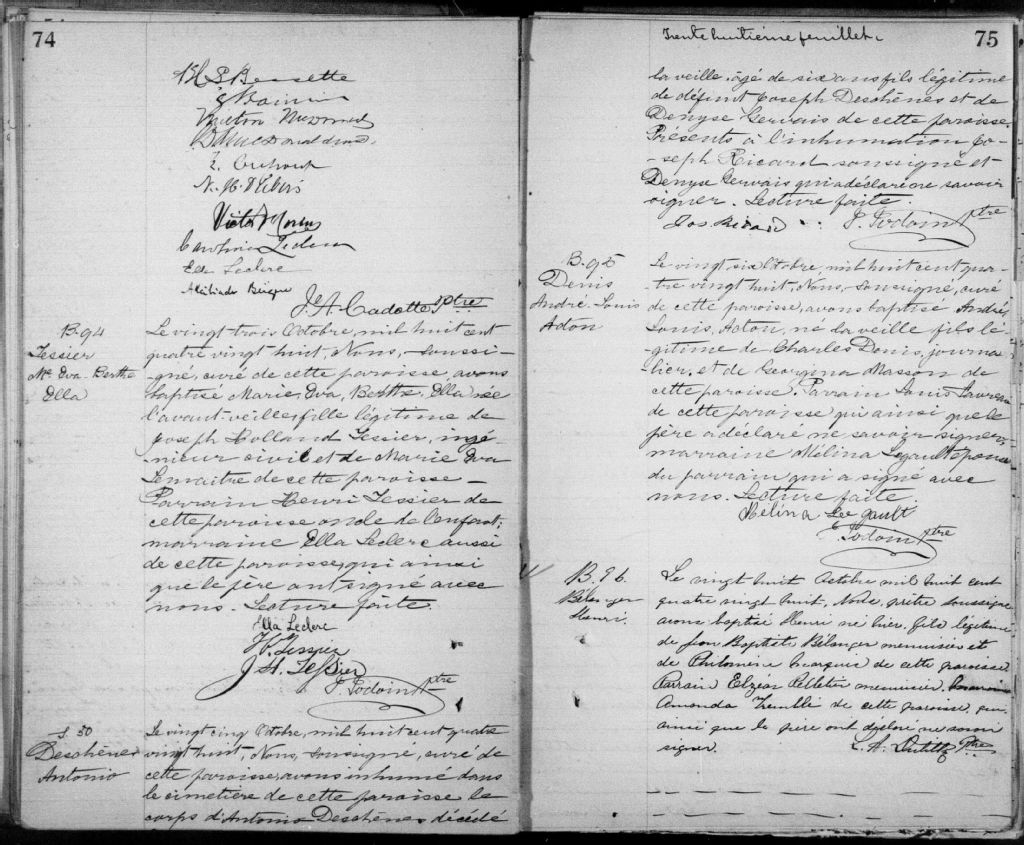 74
N. H. 
Victor Morin
Caroline Leclerc
Ella Leclerc
J. A. Cadotte Ptre
B. 94
Tessier
Me Eva-Berthe
Ella
Le vingt trois Octobre, mil huit cent
quatre vingt huit, Nous, soussi-
gné, curé de cette paroisse, avons
baptisé Marie, Eva, Berthe, Ella née
l'avant-veille, fille légitime de
Joseph Holland Tessier, ingé
nieur civil et de Marie Eva
Lemaître de cette paroisse -
Parrain Henri Tessier de
cette paroisse oncle de l'enfant;
marraine Ella Leclerc aussi
de cette paroisse, qui ainsi
que le père ont signé avec
nous. Lecture faite.
Ella Leclerc
H. Tessier
J. H. Tessier
J. Jodoin Ptre
S. 30
Deschênes
Antonio
Le vingt cinq Octobre, mil huit cent quatre
vingt huit, Nous, soussigné, curé de
cette paroisse, avons inhumé dans
le cimetière de cette paroisse le
corps d'Antonio Deschênes décédé
Trente huitième feuillet.
75
la veille, âgé de six ans fils légitime
de défunt Joseph Deschênes et de
Denyse Gervais de cette paroisse.
Présents à l'inhumation Jo-
-seph Ricard soussigné et
Denyse Gervais qui a déclaré ne savoir
signer. Lecture faite.
Jos Ricard J. Jodoin Ptre
B. 95
Denis
André, Louis
Acton
Le vingt six Octobre, mil huit cent qua-
tre vingt huit, Nous, soussigné, curé
de cette paroisse, avons baptisé André,
Louis, Acton, né la veille fils lé-
gitime de Charles Denis, journa-
lier, et de Georgina Masson de
cette paroisse. Parrain Louis
de cette paroisse qui ainsi que le
père a déclaré ne savoir signer,
marraine Mélina Legault épouse
du parrain qui a signé avec
nous. Lecture faite.
Mélina Legault
J. Jodoin Ptre
B. 96.
Bélanger
Henri.
Le vingt huit Octobre mil huit cent
quatre vingt huit, Nous, prêtre soussigné
avons baptisé Henri né hier, fils légitime
de Jean Baptiste Bélanger menuisier et
de Philomène de cette paroisse
Parrain Elzéar Pelletier menuisier,
Amanda Tremblé de cette paroisse qui
ainsi que le père ont déclaré ne savoir
signer.
Ptre